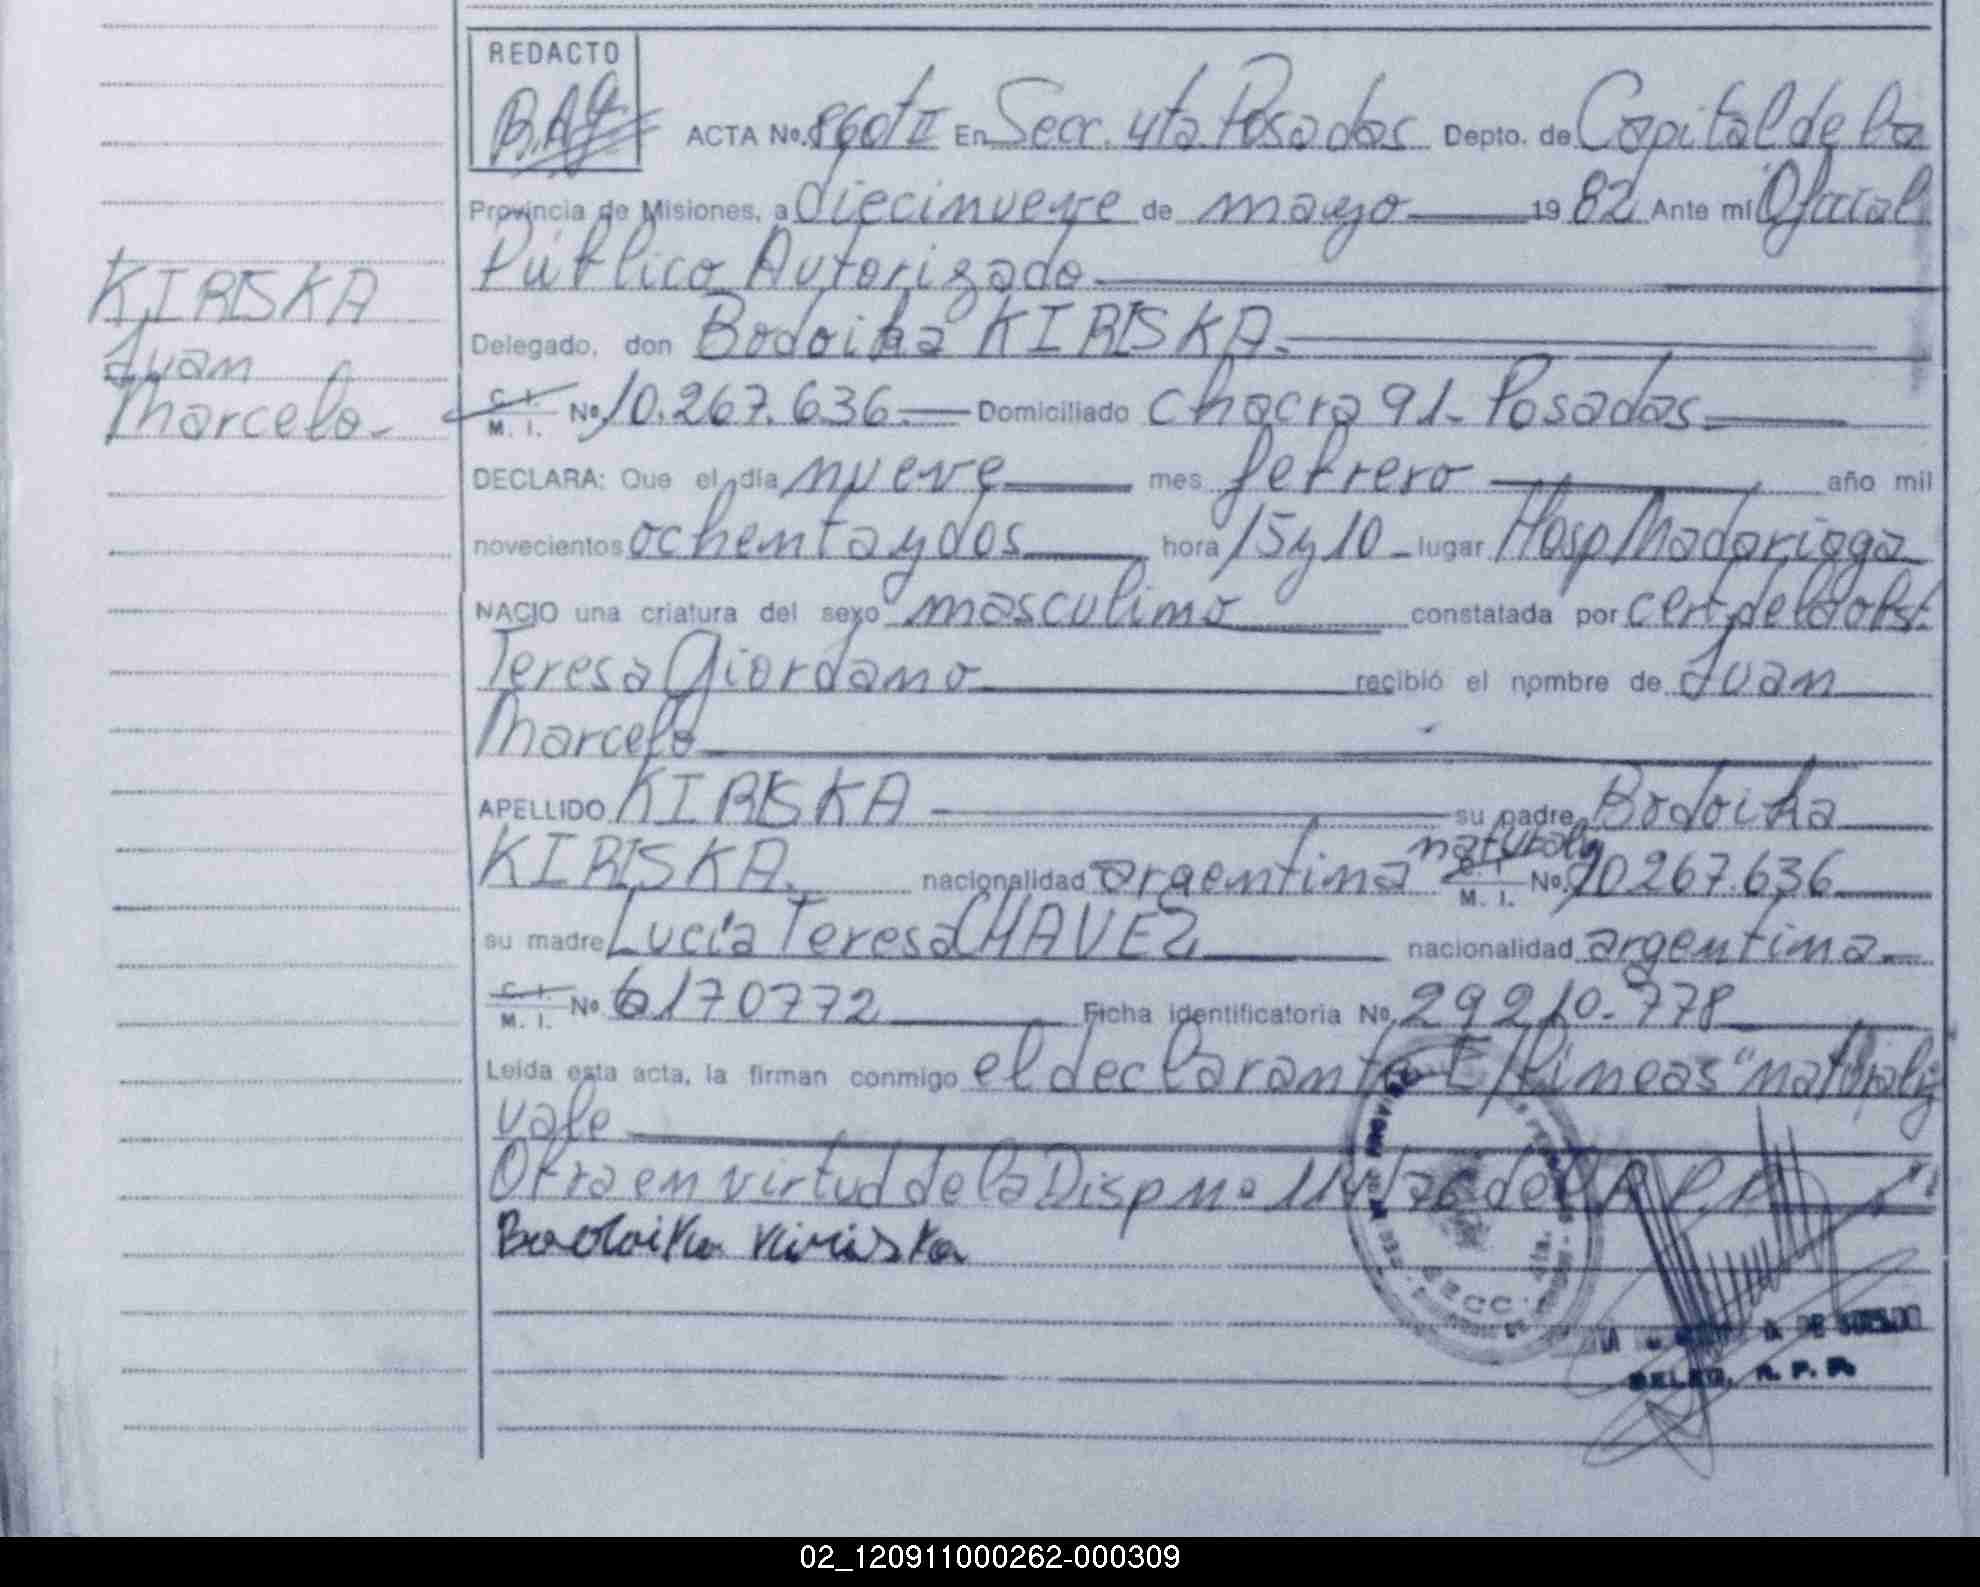 REDACTO
ACTA No. 860 t II En Secc. 4ta Posadas Depto. de Capital de la
Provincia de Misiones, a diecinueve de mayo 19 82 Ante mí Oficial
Público Autorizado
Delegado, don Bodoika KIRISKA.
KIRISKA
Juan
Marcelo-
C. I.
M. I. No. 10.267.636.— Domiciliado chacra 91- Posadas.
DECLARA: Que el día nueve mes febrero año mil
novecientos ochenta y dos hora 15 y 10 - lugar Hosp Madariaga
NACIO una criatura del sexo masculino constatada por cert. de la obst.
Teresa Giordano recibió el nombre de Juan
Marcelo
APELLIDO KIRISKA su padre Bodoika
naturaliz
KIRISKA. nacionalidad argentina C. I. M. I. No. 10267.636
su madre Lucía Teresa CHAVEZ nacionalidad argentina.
C. I.
M. I. No. 6170772 Ficha identificatoria No. 29210.778
Leída esta acta, la firman conmigo el declarante E/lineas "naturaliz
vale
Obra en virtud de la Disp nº 114/76 del R.P.P.
Bodoika Kiriska
SECC. 4ta.
DELEG. R. P. P.
02_120911000262-000309